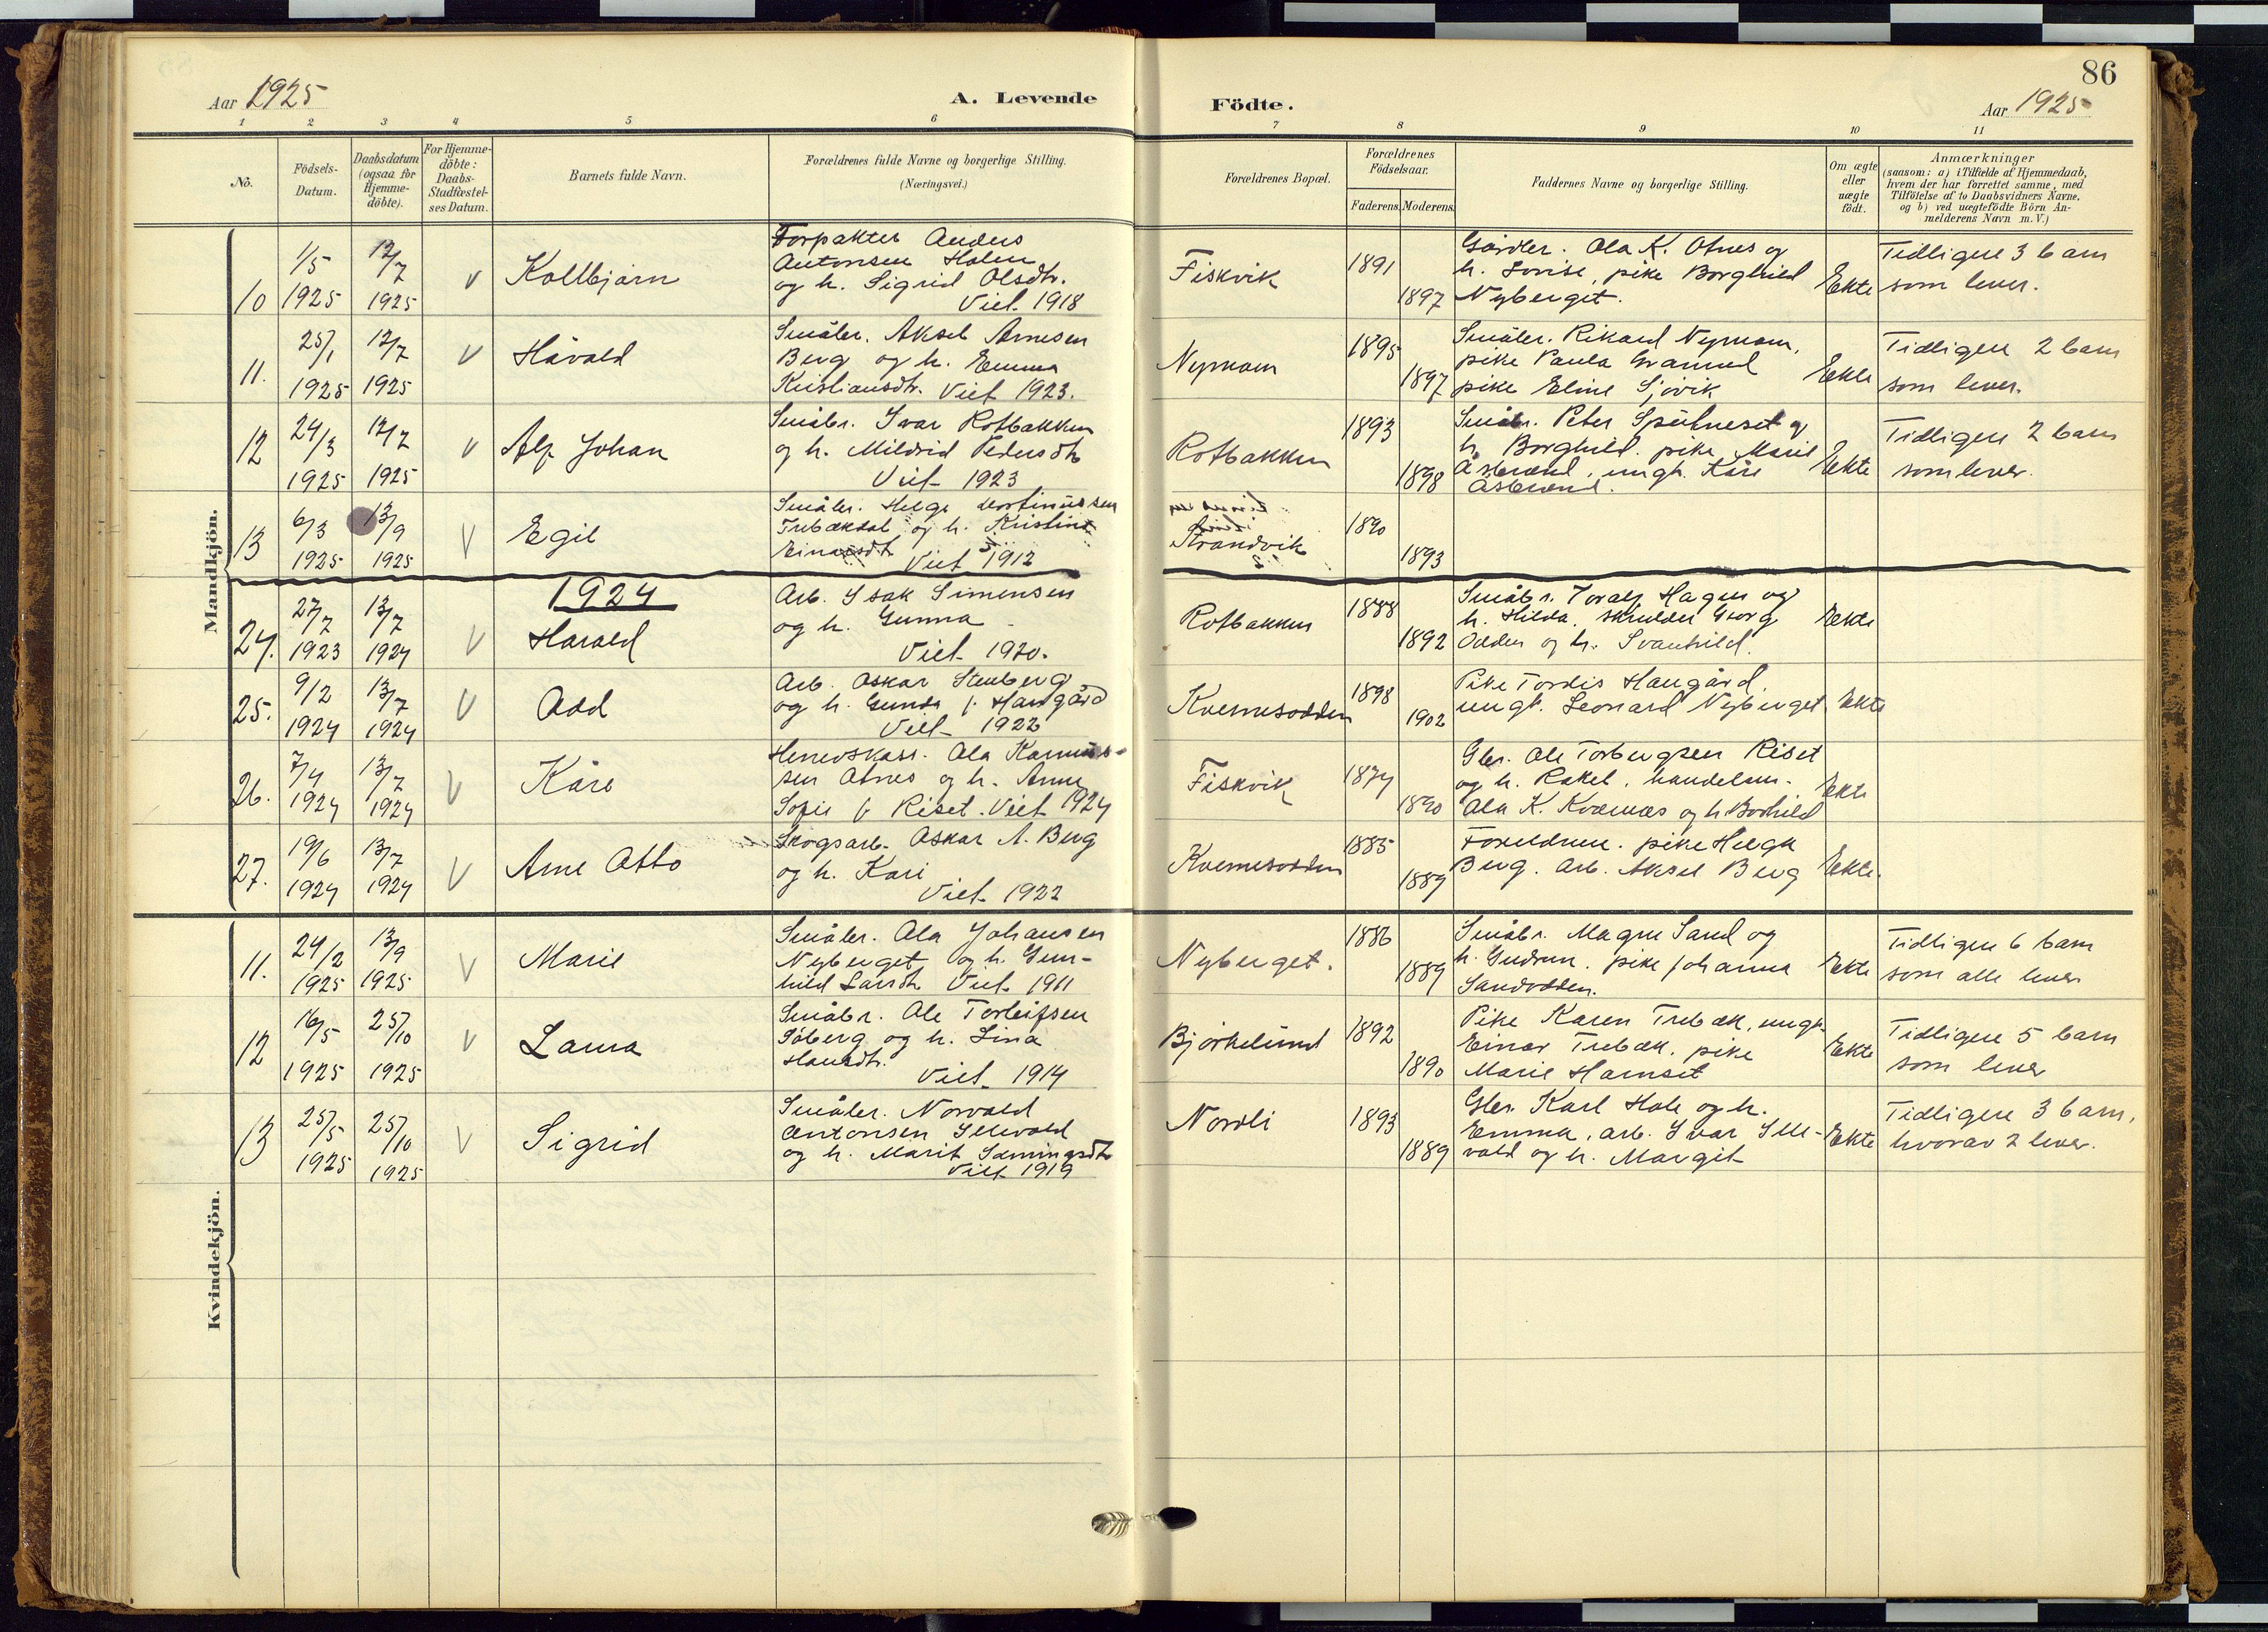 86
Aar 1925
A. Levende
Födte.
Aar 1925
1 2 3 4 5 6 7 8 9 10 11
No.
Födsels-
Datum.
Daabsdatum
(ogsaa for
Hjemme-
döbte).
For Hjemme-
döbte:
Daabs-
Stadfæstel-
ses Datum.
Barnets fulde Navn.
Forældrenes fulde Navne og borgerlige Stilling.
(Næringsvei.)
Forældrenes Bopæl.
Forældrenes
Födselsaar.
Faderens. Moderens.
Faddernes Navne og borgerlige Stilling.
Om ægte
eller
uægte
födt.
Anmærkninger
(saasom: a) i Tilfælde af Hjemmedaab,
hvem der har forrettet samme, med
Tilföielse af to Daabsvidners Navne.
og b) ved uægtefödte Börn An-
melderens Navn m. V.)
Mandkjön.
10
1/5
1925
12/7
1925
v
Kollbjørn
Forpakter Anders
Antonsen Holen
og h. Sigrid Olsdtr.
Viet 1918
Fiskvik
1891
1897
Gårdbr. Ola K. Otnes og
h. Lovise, pike Borghild
Nyberget.
Ekte
Tidligere 3 barn
som lever.
11.
25/1
1925
12/7
1925
v
Håvald
Småbr. Aksel Arnesen
Berg og h. Emma
Kristiansdtr. Viet 1923.
Nymoen
1895
1897
Småbr. Rikard Nymoen,
pike Paula
pike Eline Sjøvik
Ekte
Tidligere 2 barn
som lever.
12
24/3
1925
12/7
1925
v
Alf Johan
Småbr. Ivar Rotbakken
og h. Mildrid Pedersdtr
Viet 1923
Rotbakken
1893
1898
Småbr. Peter og
h. Borghild. pike Marie
ungk. Kåre
Ekte
Tidligere 2 barn
som lever.
13
6/3
1925
13/9
1925
v
Egil
Småbr. Helge
Trebækdal og h. Kristine
Einarsdt.
Viet 1912
Strandvik
1890
1893
1924
24.
27/7
1923
13/7
1924
v
Harald
Arb. Isak Simensen
og h. Gunna
Viet 1920.
Rotbakken
1888
1892
Småbr. Toralf Hagen og
h. Hilda. Georg
Odden og h. Svanhild.
Ekte
25.
9/2
1924
13/7
1924
v
Odd
Arb. Oskar Stenberg
og h. Gunda f. Haugård
Viet 1922
Kvernesodden
1898
1902
Pike Tordis Haugård.
ungk. Leonard Nyberget
Ekte
26.
7/4
1924
13/7
1924
v
Kåre
Herredskass. Ola Rasmus-
sen Otnes og h. Anne
Sofie f. Riset. Viet 1924
Fiskvik
1874
1890
Gbr. Ole Torbergsen Riset
og h. Rakel. handelsm.
Ola K. Kværnæs og h. Borhild
Ekte
27.
19/6
1924
13/7
1924
v
Arne Otto
Skogsarb. Oskar A. Berg
og h. Kari
Viet 1922
Kvernesodden
1885
1889
Foreldrene. pike Helga
Berg. Arb. Aksel Berg
Ekte.
Kvindekjön.
11.
24/2
1925
13/9
1925
v
Marie
Småbr. Ola Johansen
Nyberget og h. Gun-
hild Larsdtr Viet 1911
Nyberget.
1886
1889
Småbr. Magne Sand og
h. Gudrun. pike Johanna
Sandodden.
Ekte
Tidligere 6 barn
som alle lever
12
16/5
1925
25/10
1925
v
Laura
Småbr. Ole Torleifsen
Søberg og h. Lina
Hansdtr.
Viet 1914
Bjørkelund
1892
1890
Pike Karen Trebæk, ungk.
Einar Trebæk. pike
Marie Harnset
Ekte
Tidligere 5 barn
som lever
13
25/5
1925
25/10
1925
v
Sigrid
Småbr. Norvald
Antonsen Illevold
og h. Marit Sæmingsdtr
Viet 1919
Nordli
1893
1889
Gbr. Karl Hole og h.
Emma, arb. Ivar Ille-
vold og h. Margit
Ekte
Tidligere 3 barn,
hvorav 2 lever.